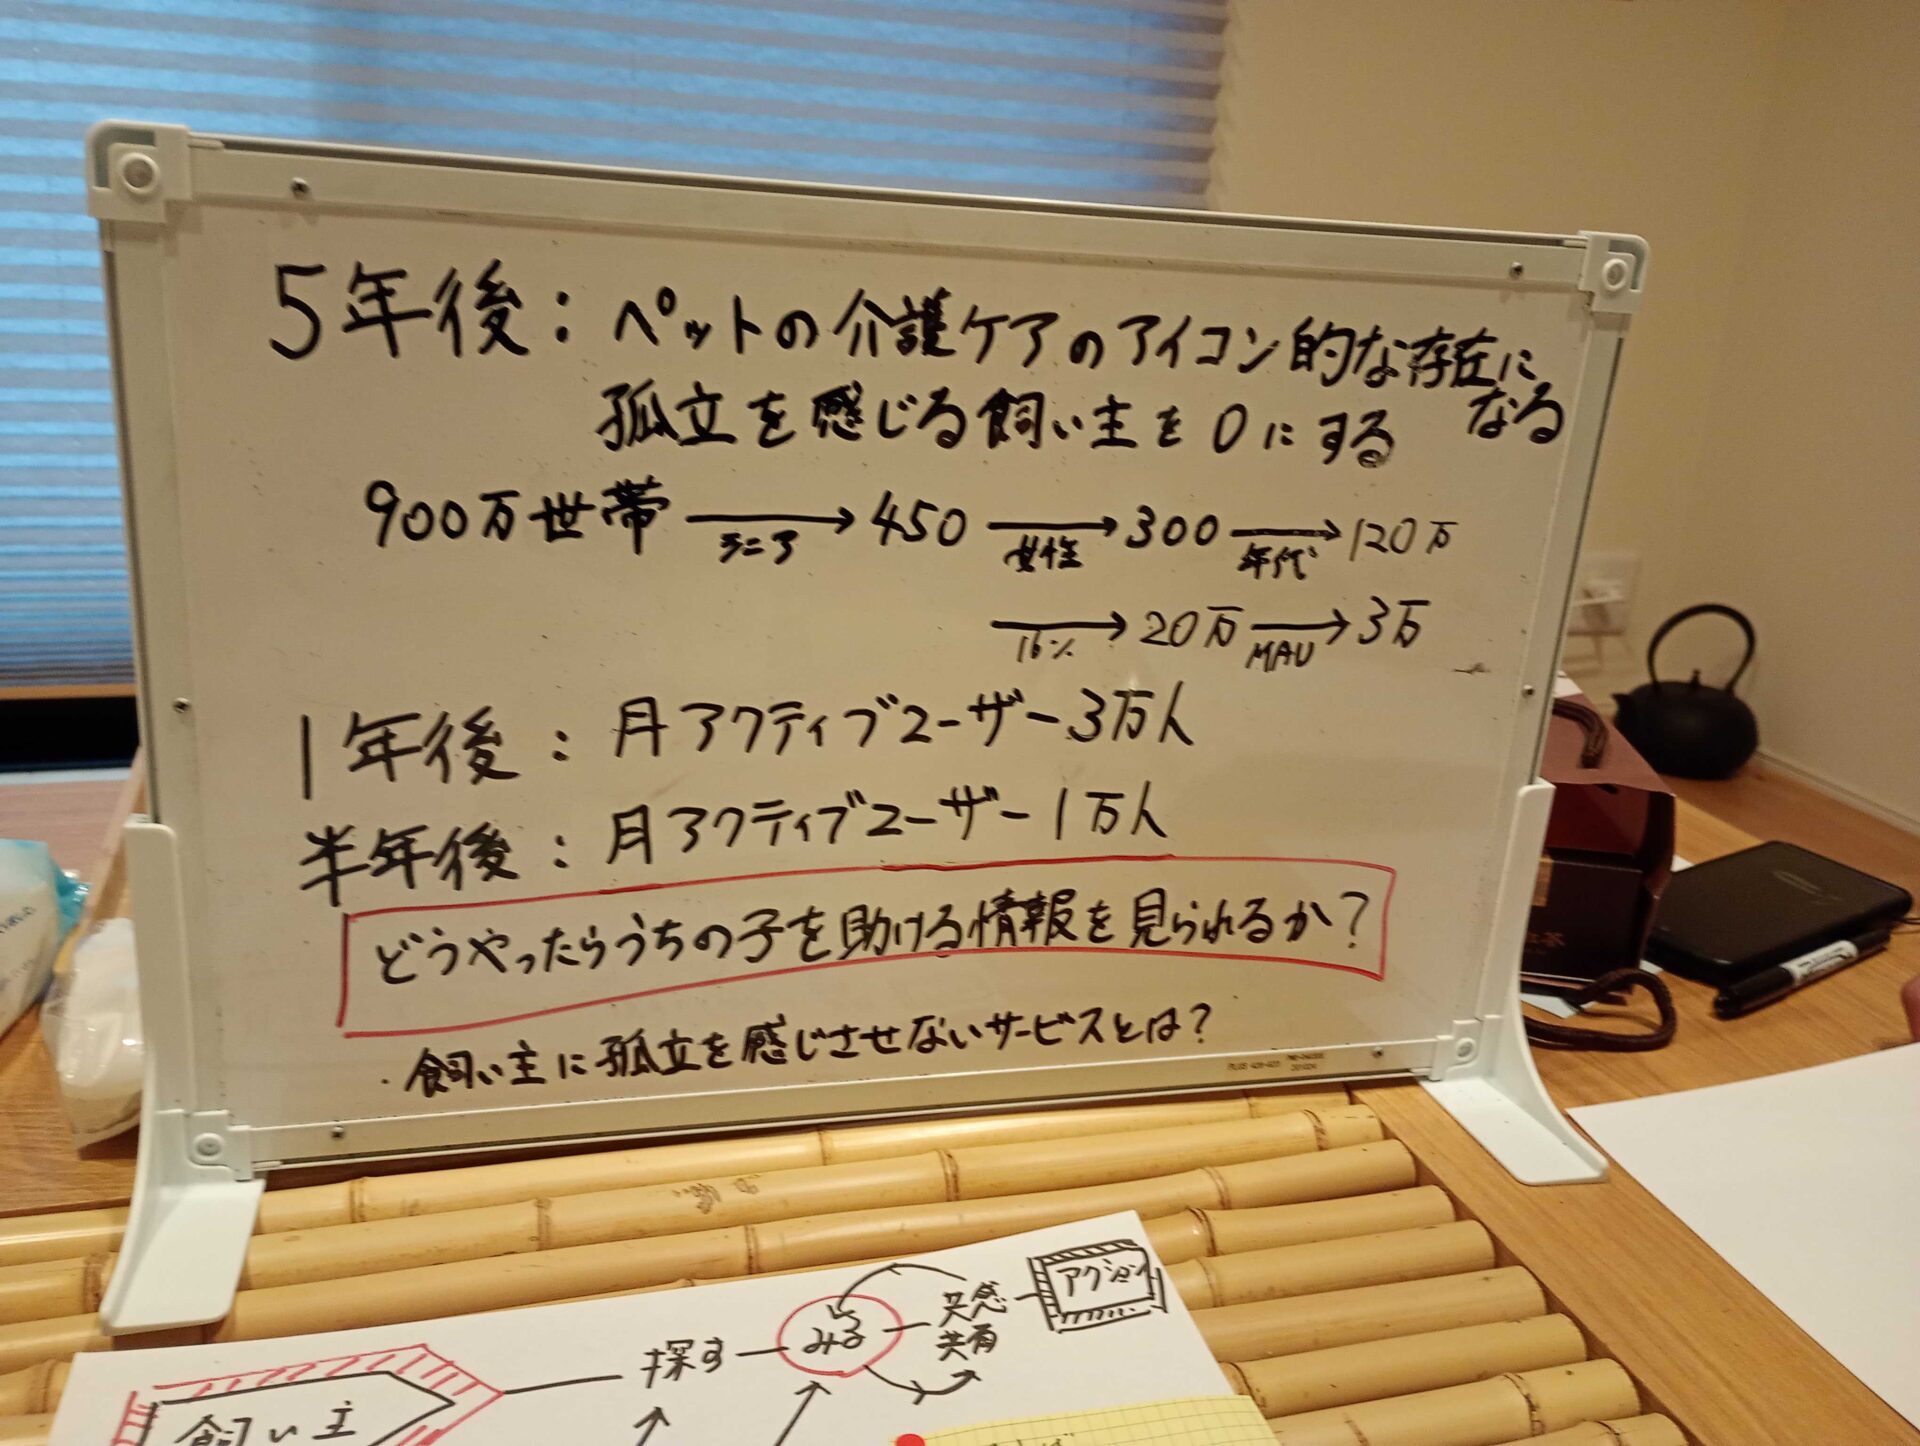 5年後：ペットの介護ケアのアイコン的な存在になる
孤立を感じる飼い主を0にする
900万世帯 → 450 → 300 → 120万
シニア 女性 年代
→ 20万 → 3万
16% MAU
1年後：月アクティブユーザー3万人
半年後：月アクティブユーザー1万人
どうやったらうちの子を助ける情報を見られるか？
・飼い主に孤立を感じさせないサービスとは？
飼い主
探す
みる
共感
共有
アクション